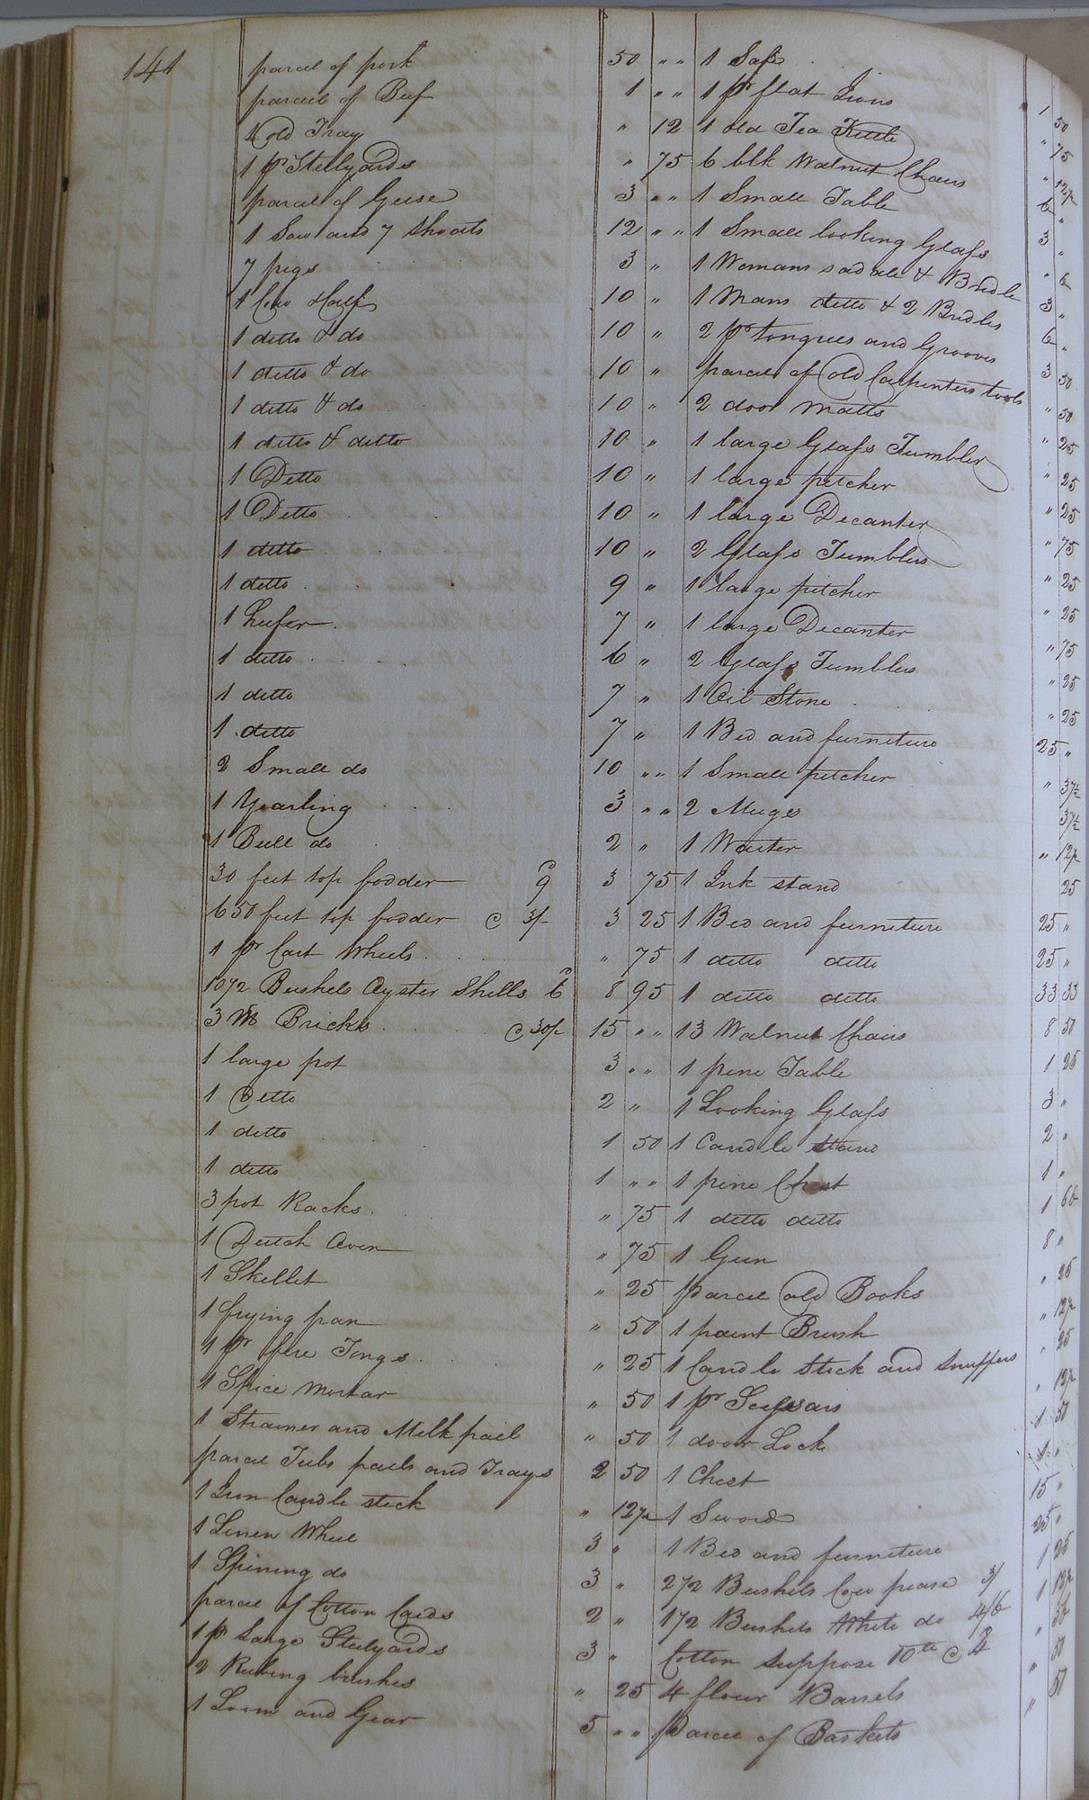 141
parcel of pork 50 " "
parcel of Beef 1 " "
1 old Tray " 12
1 pr Stillyards " 75
parcel of Geese 3 " "
1 Sow and 7 Shoats 12 " "
7 pigs 3 "
1 Cow & Calf 10 "
1 ditto & do 10 "
1 ditto & do 10 "
1 ditto & do 10 "
1 ditto & ditto 10 "
1 Ditto 10 "
1 Ditto 10 "
1 ditto 10 "
1 ditto 9 "
1 heifer 7 "
1 ditto 6 "
1 ditto 7 "
1 ditto 7 "
2 Small do 10 " "
1 Yearling 3 " "
1 Bull do 2 "
30 feet top fodder 9 3 75
650 feet top fodder @ 3/ 3 25
1 pr Cart Wheels " 75
1072 Bushels Oyster Shells 6 8 95
3 M Bricks @ 30/ 15 " "
1 large pot 3 " "
1 Ditto 2 "
1 ditto 1 50
1 ditto 1 " "
3 pot Racks " 75
1 Dutch Oven " 75
1 Skellet " 25
1 frying pan " 50
1 pr fire Tongs " 25
1 Spice Mortar " 50
1 Strainer and Milk pail " 50
parcel Tubs pails and Trays 2 50
1 Iron Candle stick " 12½
1 Linen Wheel 3 "
1 Spining do 3 "
parcel of Cotton Cards 2 "
1 pr Large Steelyards 3 "
2 Rubing brushes " 25
1 Loom and Gear 5 " "
1 Safe 1 50
1 pr flat Irons " 75
1 old Tea Kettle " 12½
6 blk Walnut Chairs 6 "
1 Small Table 3 "
1 Small looking Glass " 6
1 Womans sadale & Bridle 3 "
1 Mans ditto & 2 Bridles 6 "
2 pr tongues and Grooves 3 50
parcel of Old Carpenters tools " 50
2 door Matts " 25
1 large Glass Tumbler " 25
1 large pitcher " 25
1 large Decanter " 75
2 Glass Tumblers " 25
1 large pitcher " 25
1 large Decanter " 75
2 Glass Tumblers " 25
1 Oil Stone " 25
1 Bed and furneture 25 "
1 Small pitcher " 37½
2 Mugs 37½
1 Waiter " 12½
1 Ink stand 25
1 Bed and furneture 25 "
1 ditto ditto 25 "
1 ditto ditto 33 33
13 Walnut Chairs 8 50
1 pine Table 1 25
1 Looking Glass 3 "
1 Candle Stand 2 "
1 pine Chest 1 "
1 ditto ditto 1
1 Gun 8 "
parcel old Books " 25
1 paint Brush " 12½
1 Candle stick and Snuffers " 25
1 pr Scissars " 12½
1 door Lock 50
1 Chest
1 Sword 15 "
1 Bed and furneture 25 "
2½ Bushels Cow pease 3/ 1 25
1½ Bushels White do 4/6 1 12½
Cotton suppose 10 @
4 flour Barrels " 50
parcel of Baskets " 50